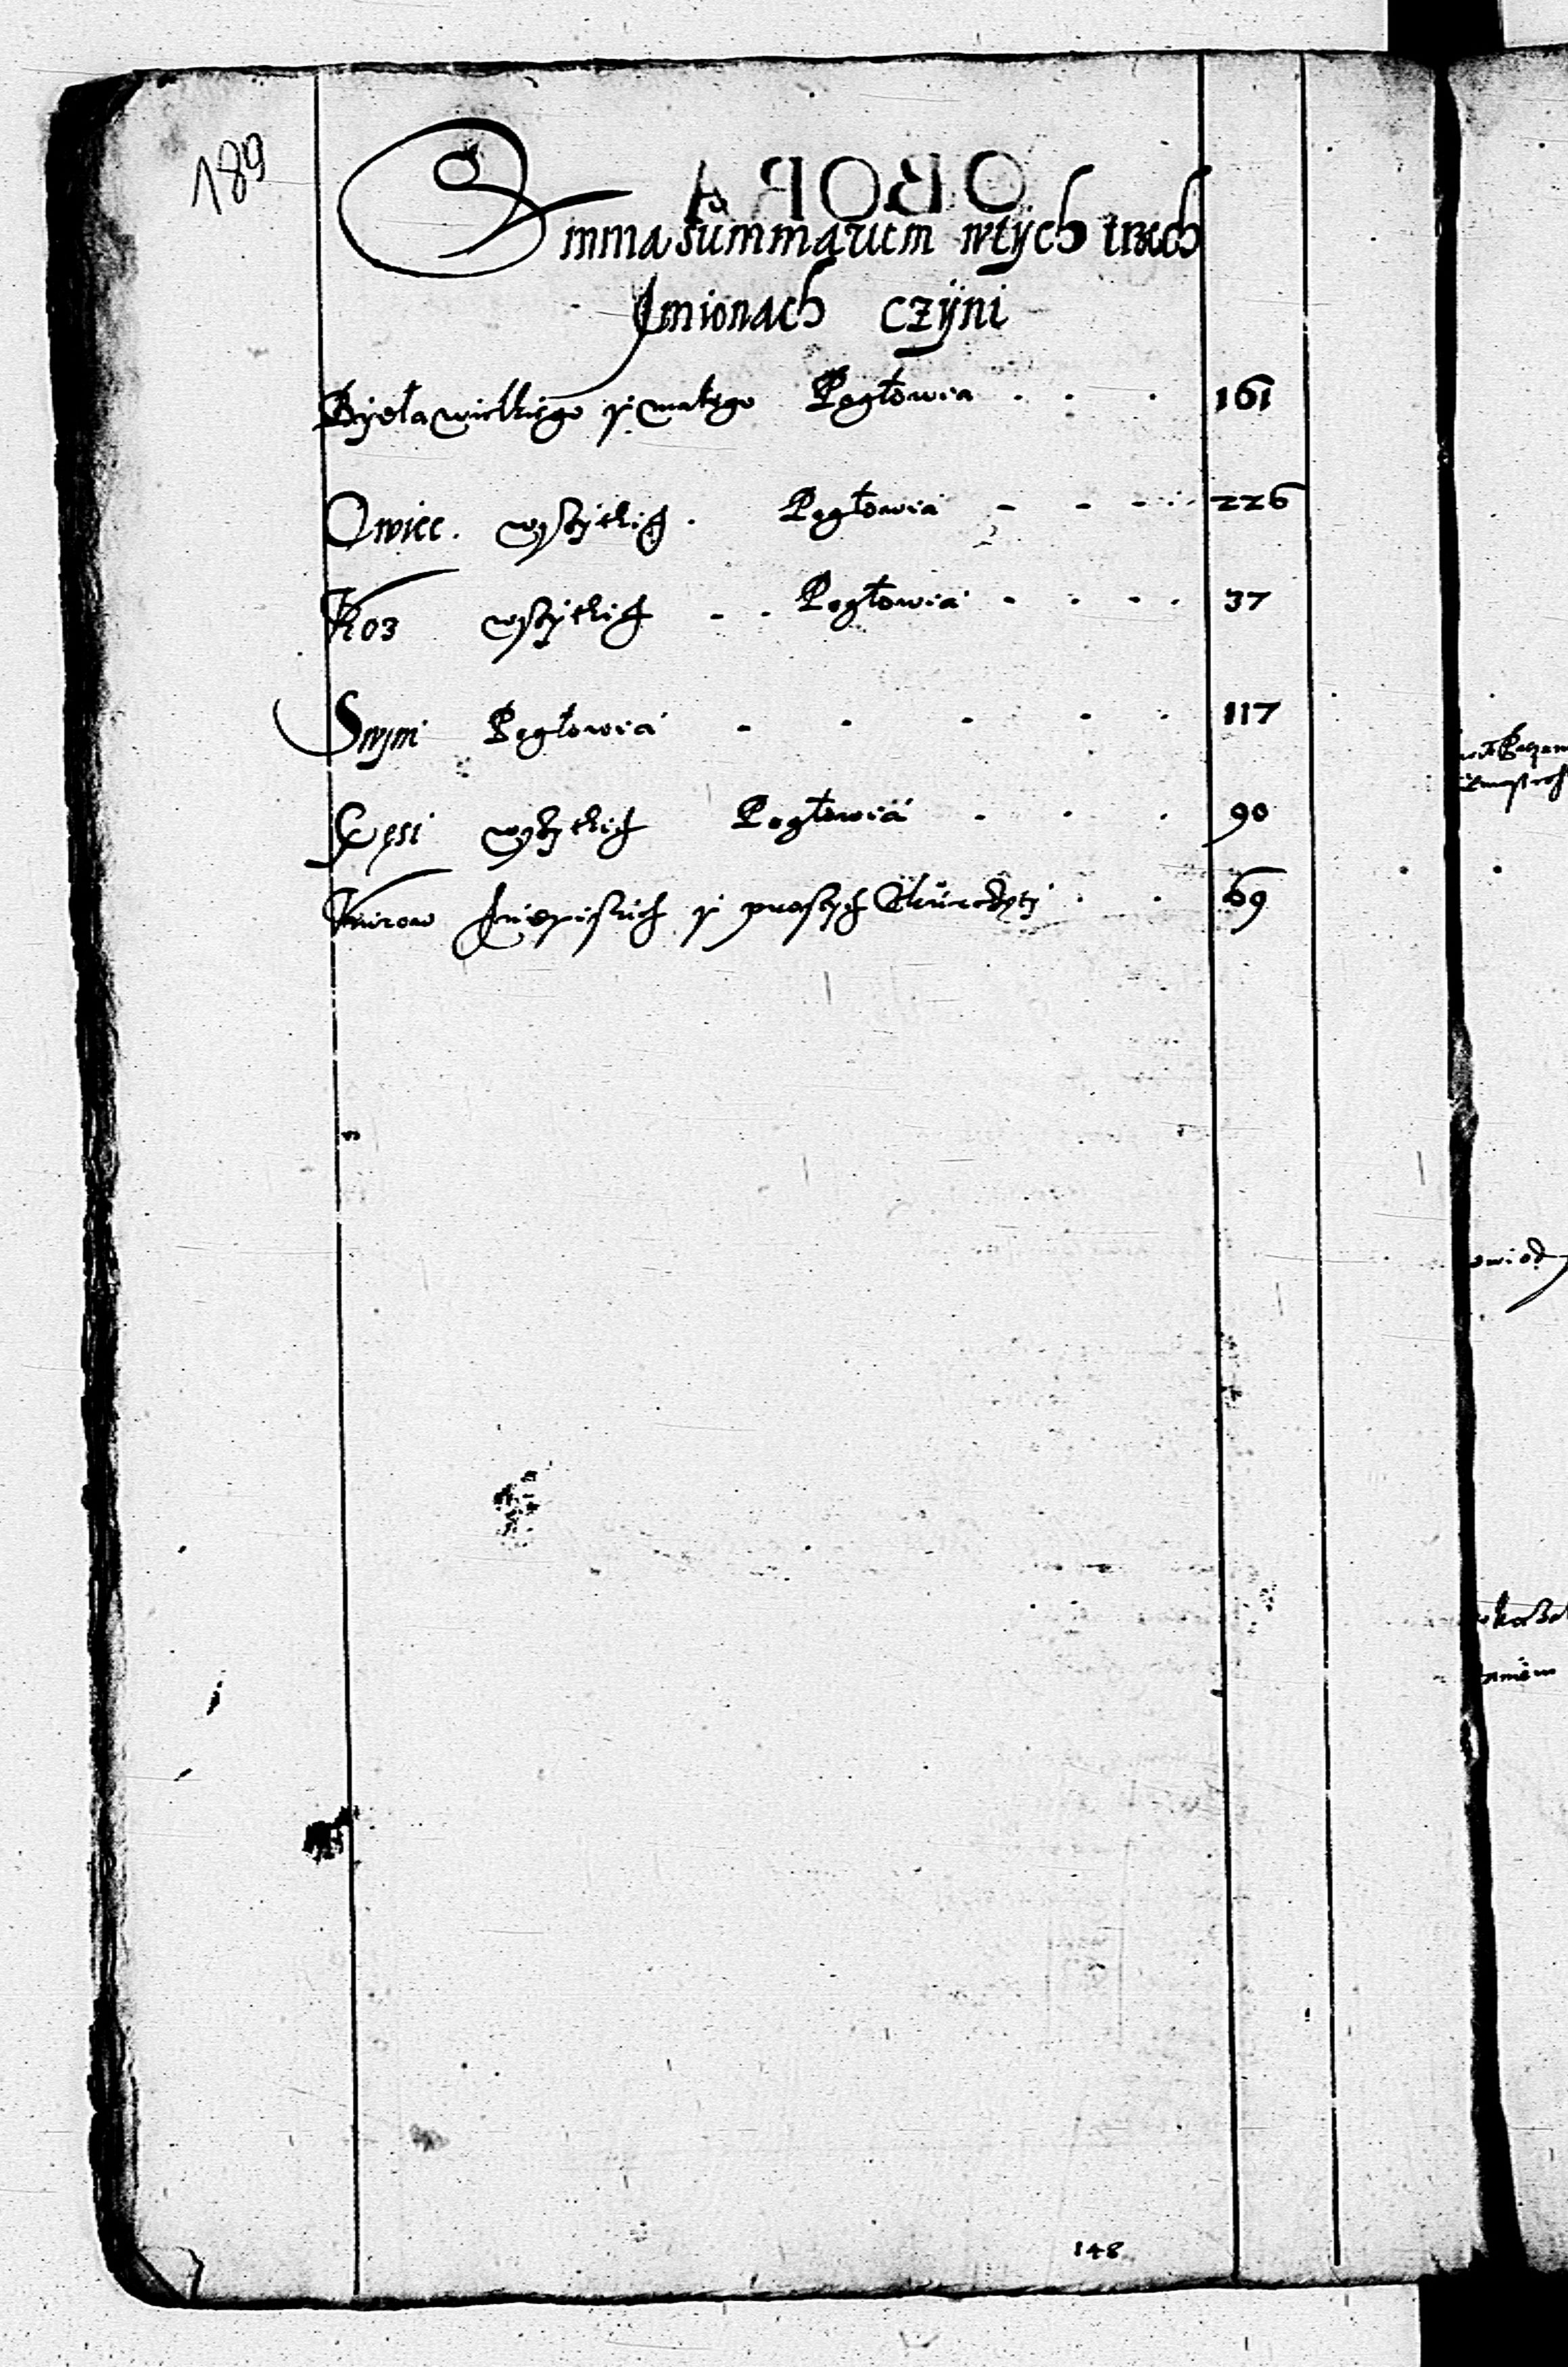 189
Summa summarum wtÿch trzech
Imionach czÿni
Bydła wielkiego y małego Pogłowia . . . 161
Owiec. wszytkich . Pogłowia - - - . . 226
Koz wszytkich . . Pogłowia . . . . 37
Swini Pogłowia . . . . . 117
Gęsi wszytkich Pogłowia . . . 90
Kurow Indyiskich y prostych . . 69
148